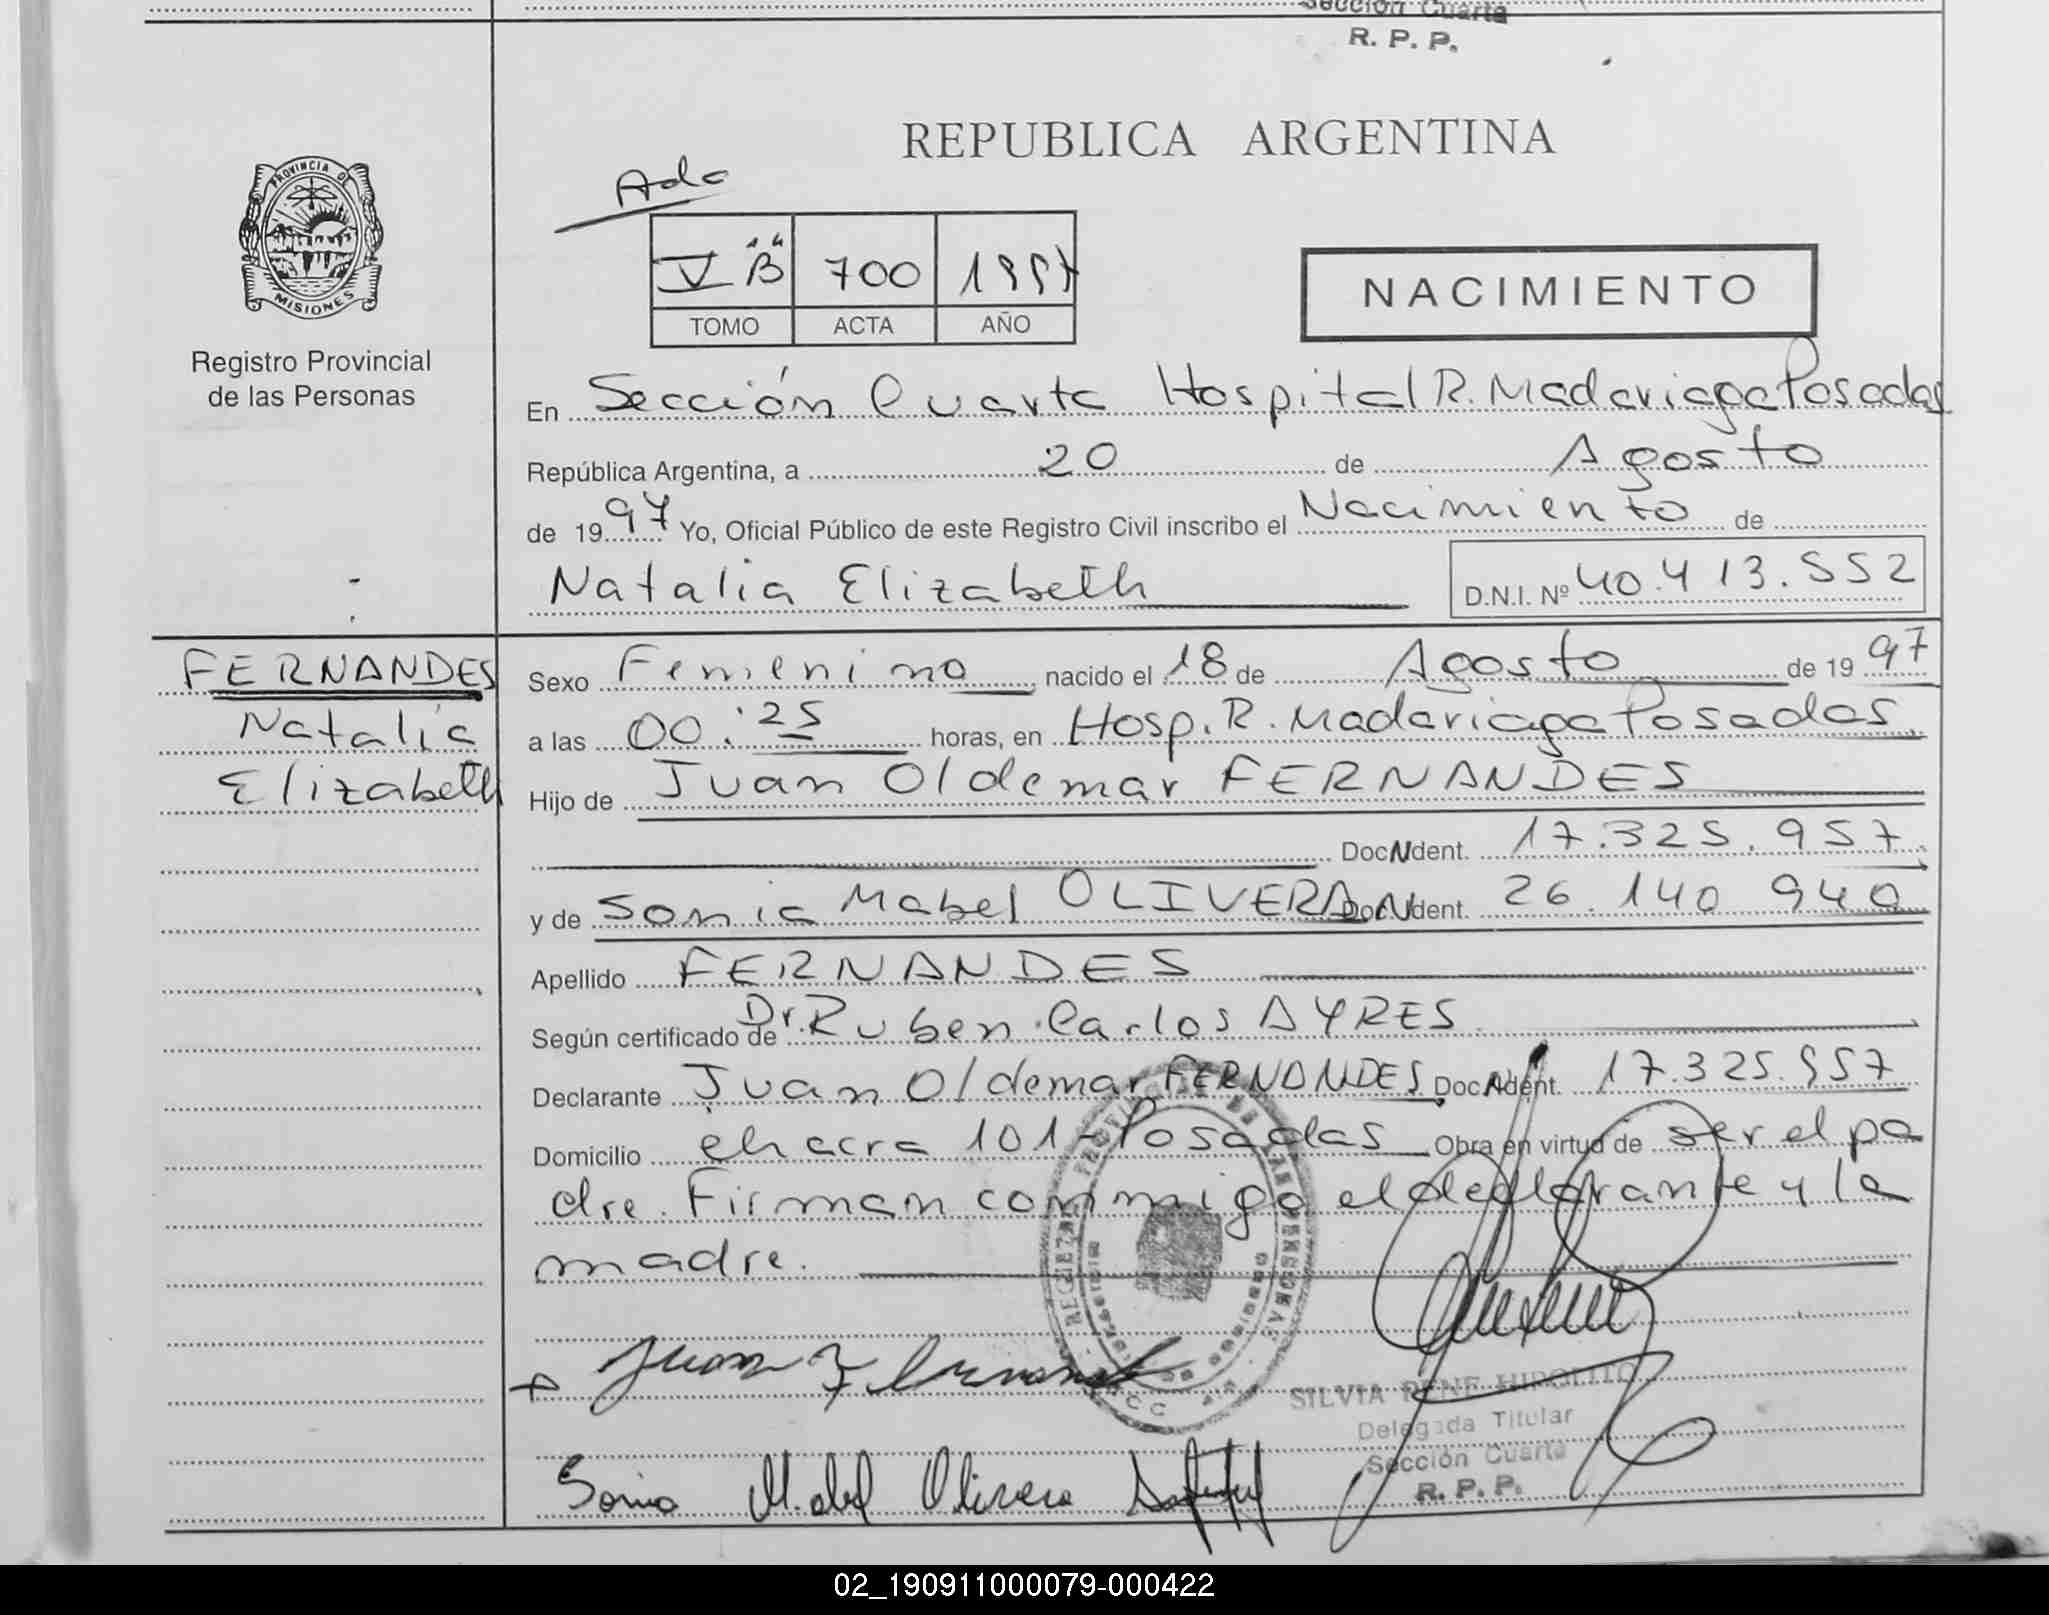 Sección Cuarta
R. P. P.
REPUBLICA ARGENTINA
PROVINCIA DE
MISIONES
Registro Provincial
de las Personas
V "B" 700 1997
TOMO ACTA AÑO
NACIMIENTO
En Sección Cuarta Hospital R. Madariaga Posadas
República Argentina, a 20 de Agosto
de 1997 Yo, Oficial Público de este Registro Civil inscribo el Nacimiento de
Natalia Elizabeth D.N.I. Nº 40.413.552
FERNANDES
Natalia
Elizabeth
Sexo Femenino nacido el 18 de Agosto de 1997
a las 00:25 horas, en Hosp. R. Madariaga Posadas.
Hijo de Juan Oldemar FERNANDES
Doc. Ident. 17.325.957
y de Sonia Mabel OLIVERA Doc. Ident. 26.140 940
Apellido FERNANDES
Según certificado de Dr. Ruben Carlos AYRES
Declarante Juan Oldemar FERNANDES Doc. Ident. 17.325.957
Domicilio chacra 101 - Posadas Obra en virtud de ser el pa
dre. Firman conmigo el declarante y la
madre.
SILVIA RENE HIPOLITO
Delegada Titular
Sección Cuarta
R. P. P.
Sonia Mabel Olivera
02_190911000079-000422